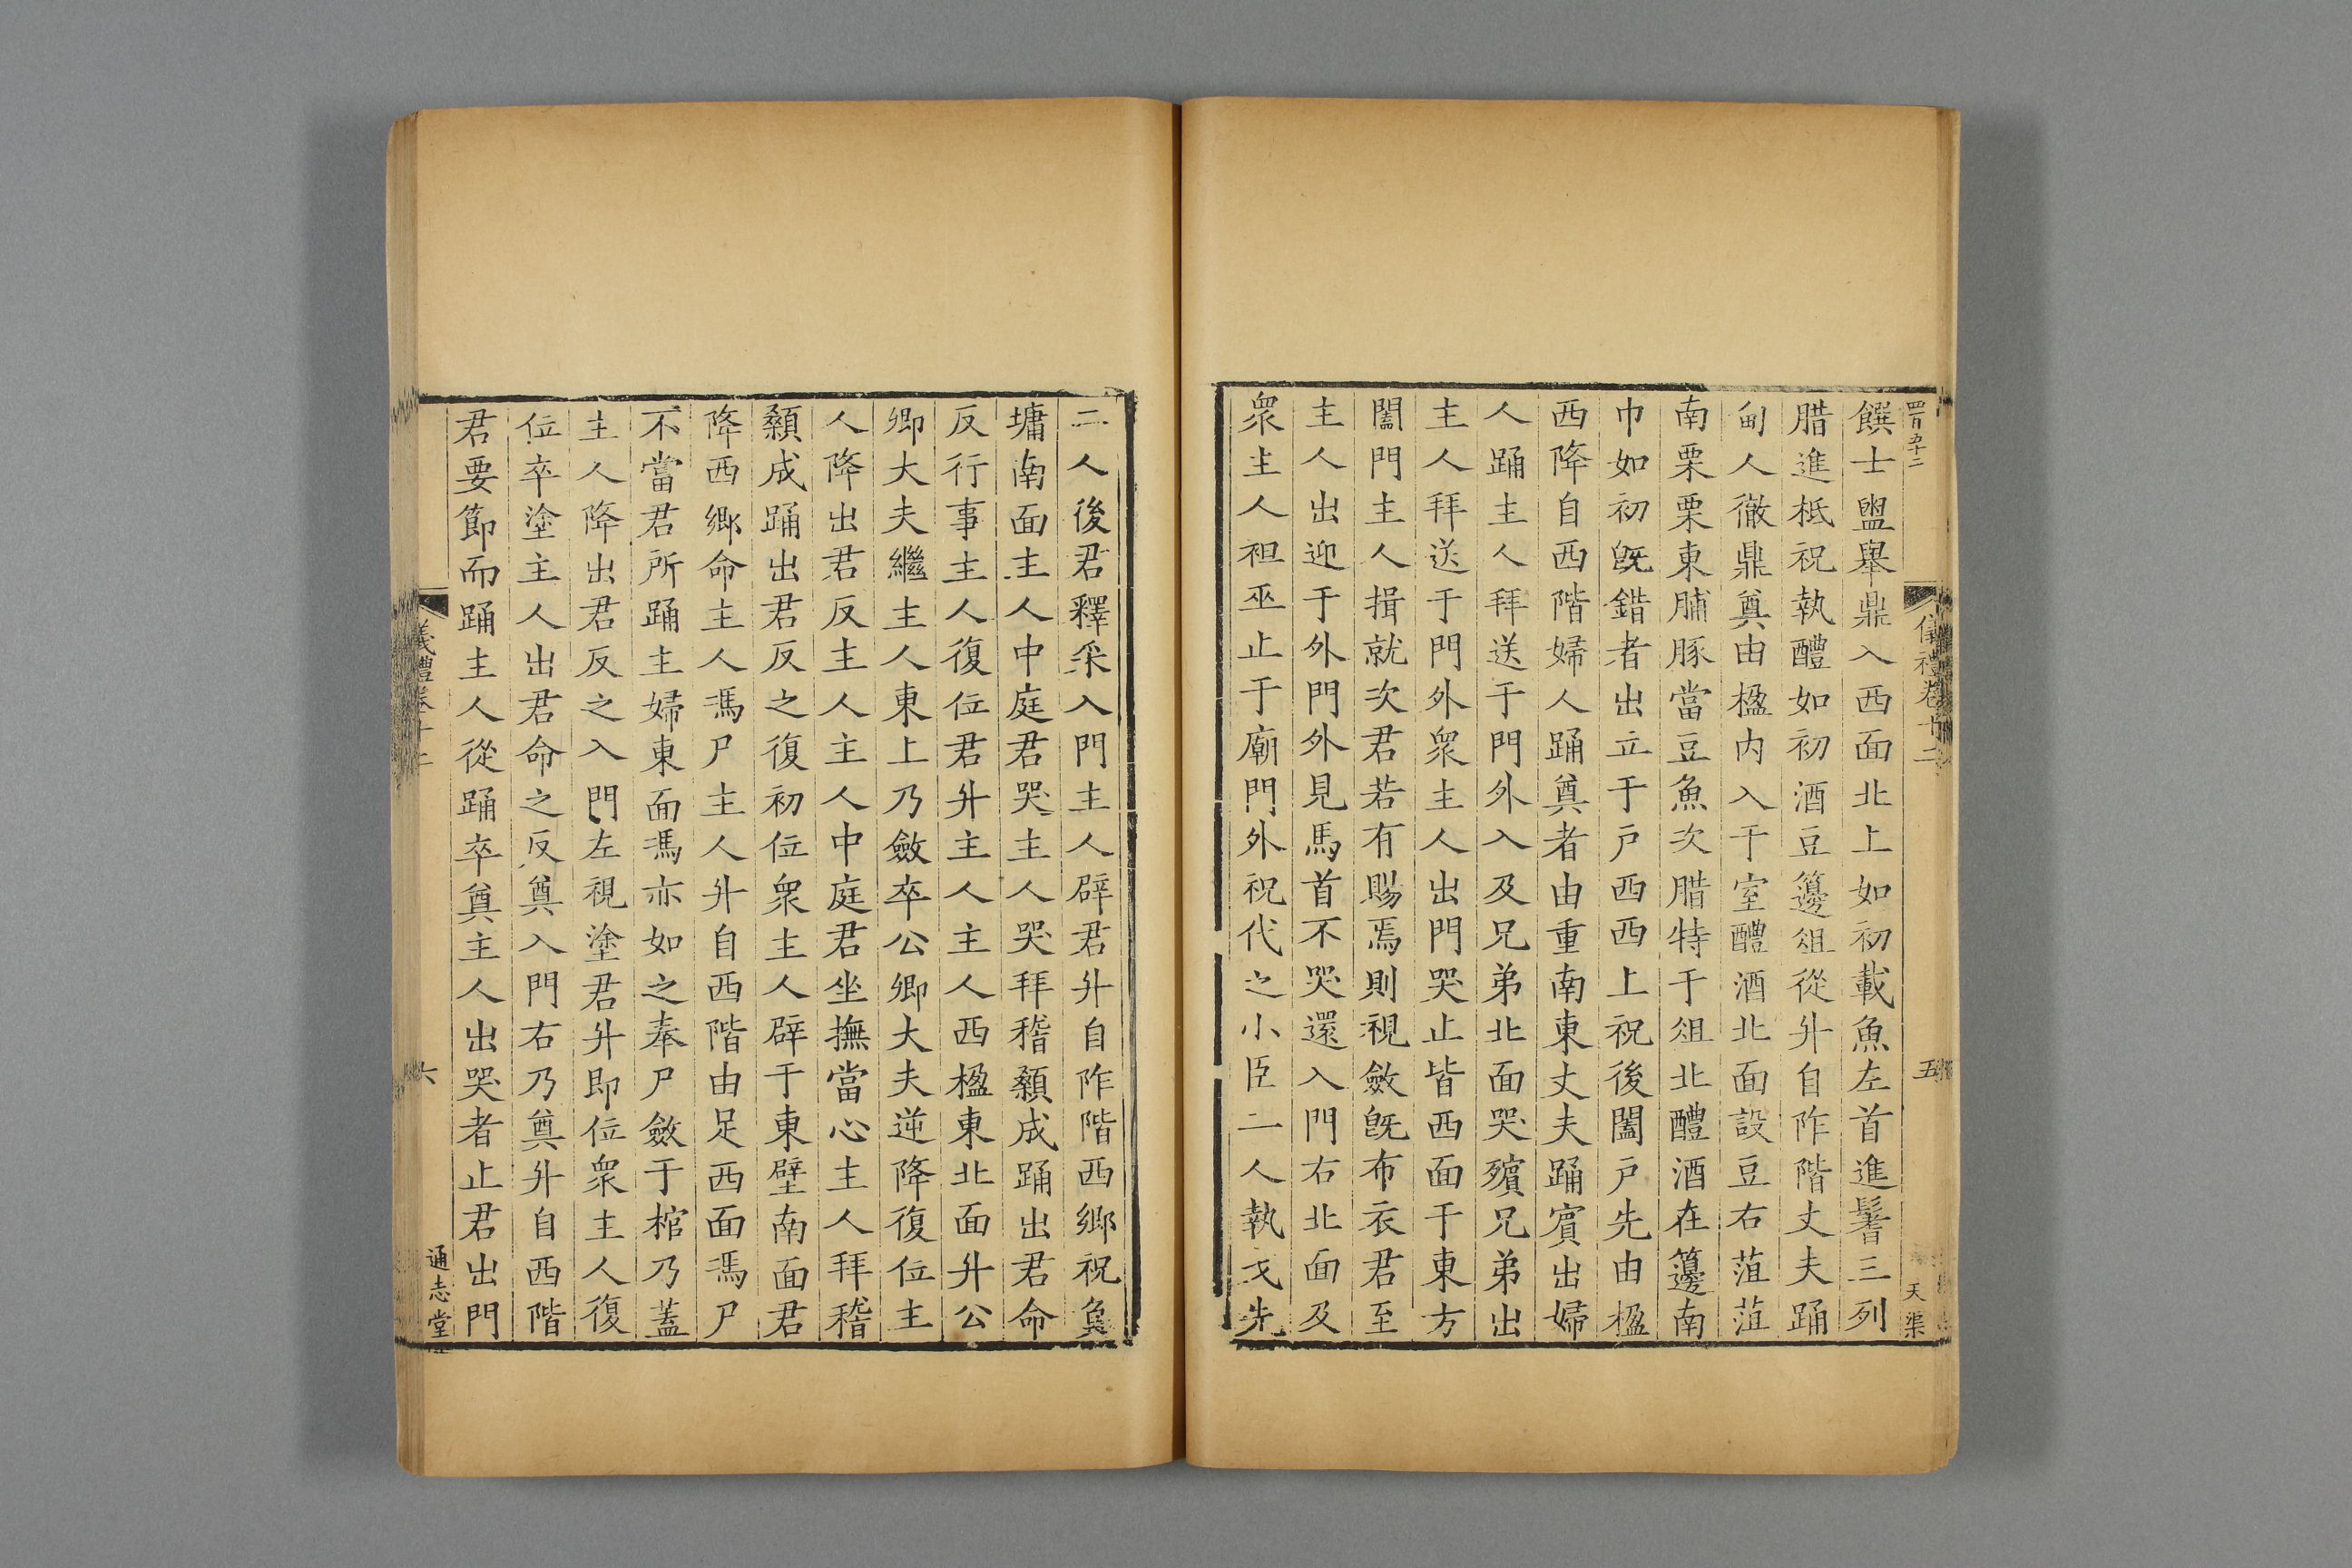 四百五十二
儀禮卷十二
五
天渠
饌士盥舉鼎入西面北上如初載魚左首進鬐三列
腊進柢祝執醴如初酒豆籩俎從升自阼階丈夫踊
甸人徹鼎奠由楹内入于室醴酒北面設豆右菹菹
南栗栗東脯豚當豆魚次腊特于俎北醴酒在籩南
巾如初旣錯者出立于户西西上祝後闔户先由楹
西降自西階婦人踊奠者由重南東丈夫踊賓出婦
人踊主人拜送于門外入及兄弟北面哭殯兄弟出
主人拜送于門外衆主人出門哭止皆西面于東方
闔門主人揖就次君若有賜焉則視斂旣布衣君至
主人出迎于外門外見馬首不哭還入門右北面及
衆主人袒巫止于廟門外祝代之小臣二人執戈先
二人後君釋采入門主人辟君升自阼階西鄉祝負
墉南面主人中庭君哭主人哭拜稽顙成踊出君命
反行事主人復位君升主人主人西楹東北面升公
卿大夫繼主人東上乃斂卒公卿大夫逆降復位主
人降出君反主人主人中庭君坐撫當心主人拜稽
顙成踊出君反之復初位衆主人辟于東壁南面君
降西鄉命主人馮尸主人升自西階由足西面馮尸
不當君所踊主婦東面馮亦如之奉尸斂于棺乃蓋
主人降出君反之入門左視塗君升即位衆主人復
位卒塗主人出君命之反奠入門右乃奠升自西階
君要節而踊主人從踊卒奠主人出哭者止君出門
儀禮卷十二
六
通志堂